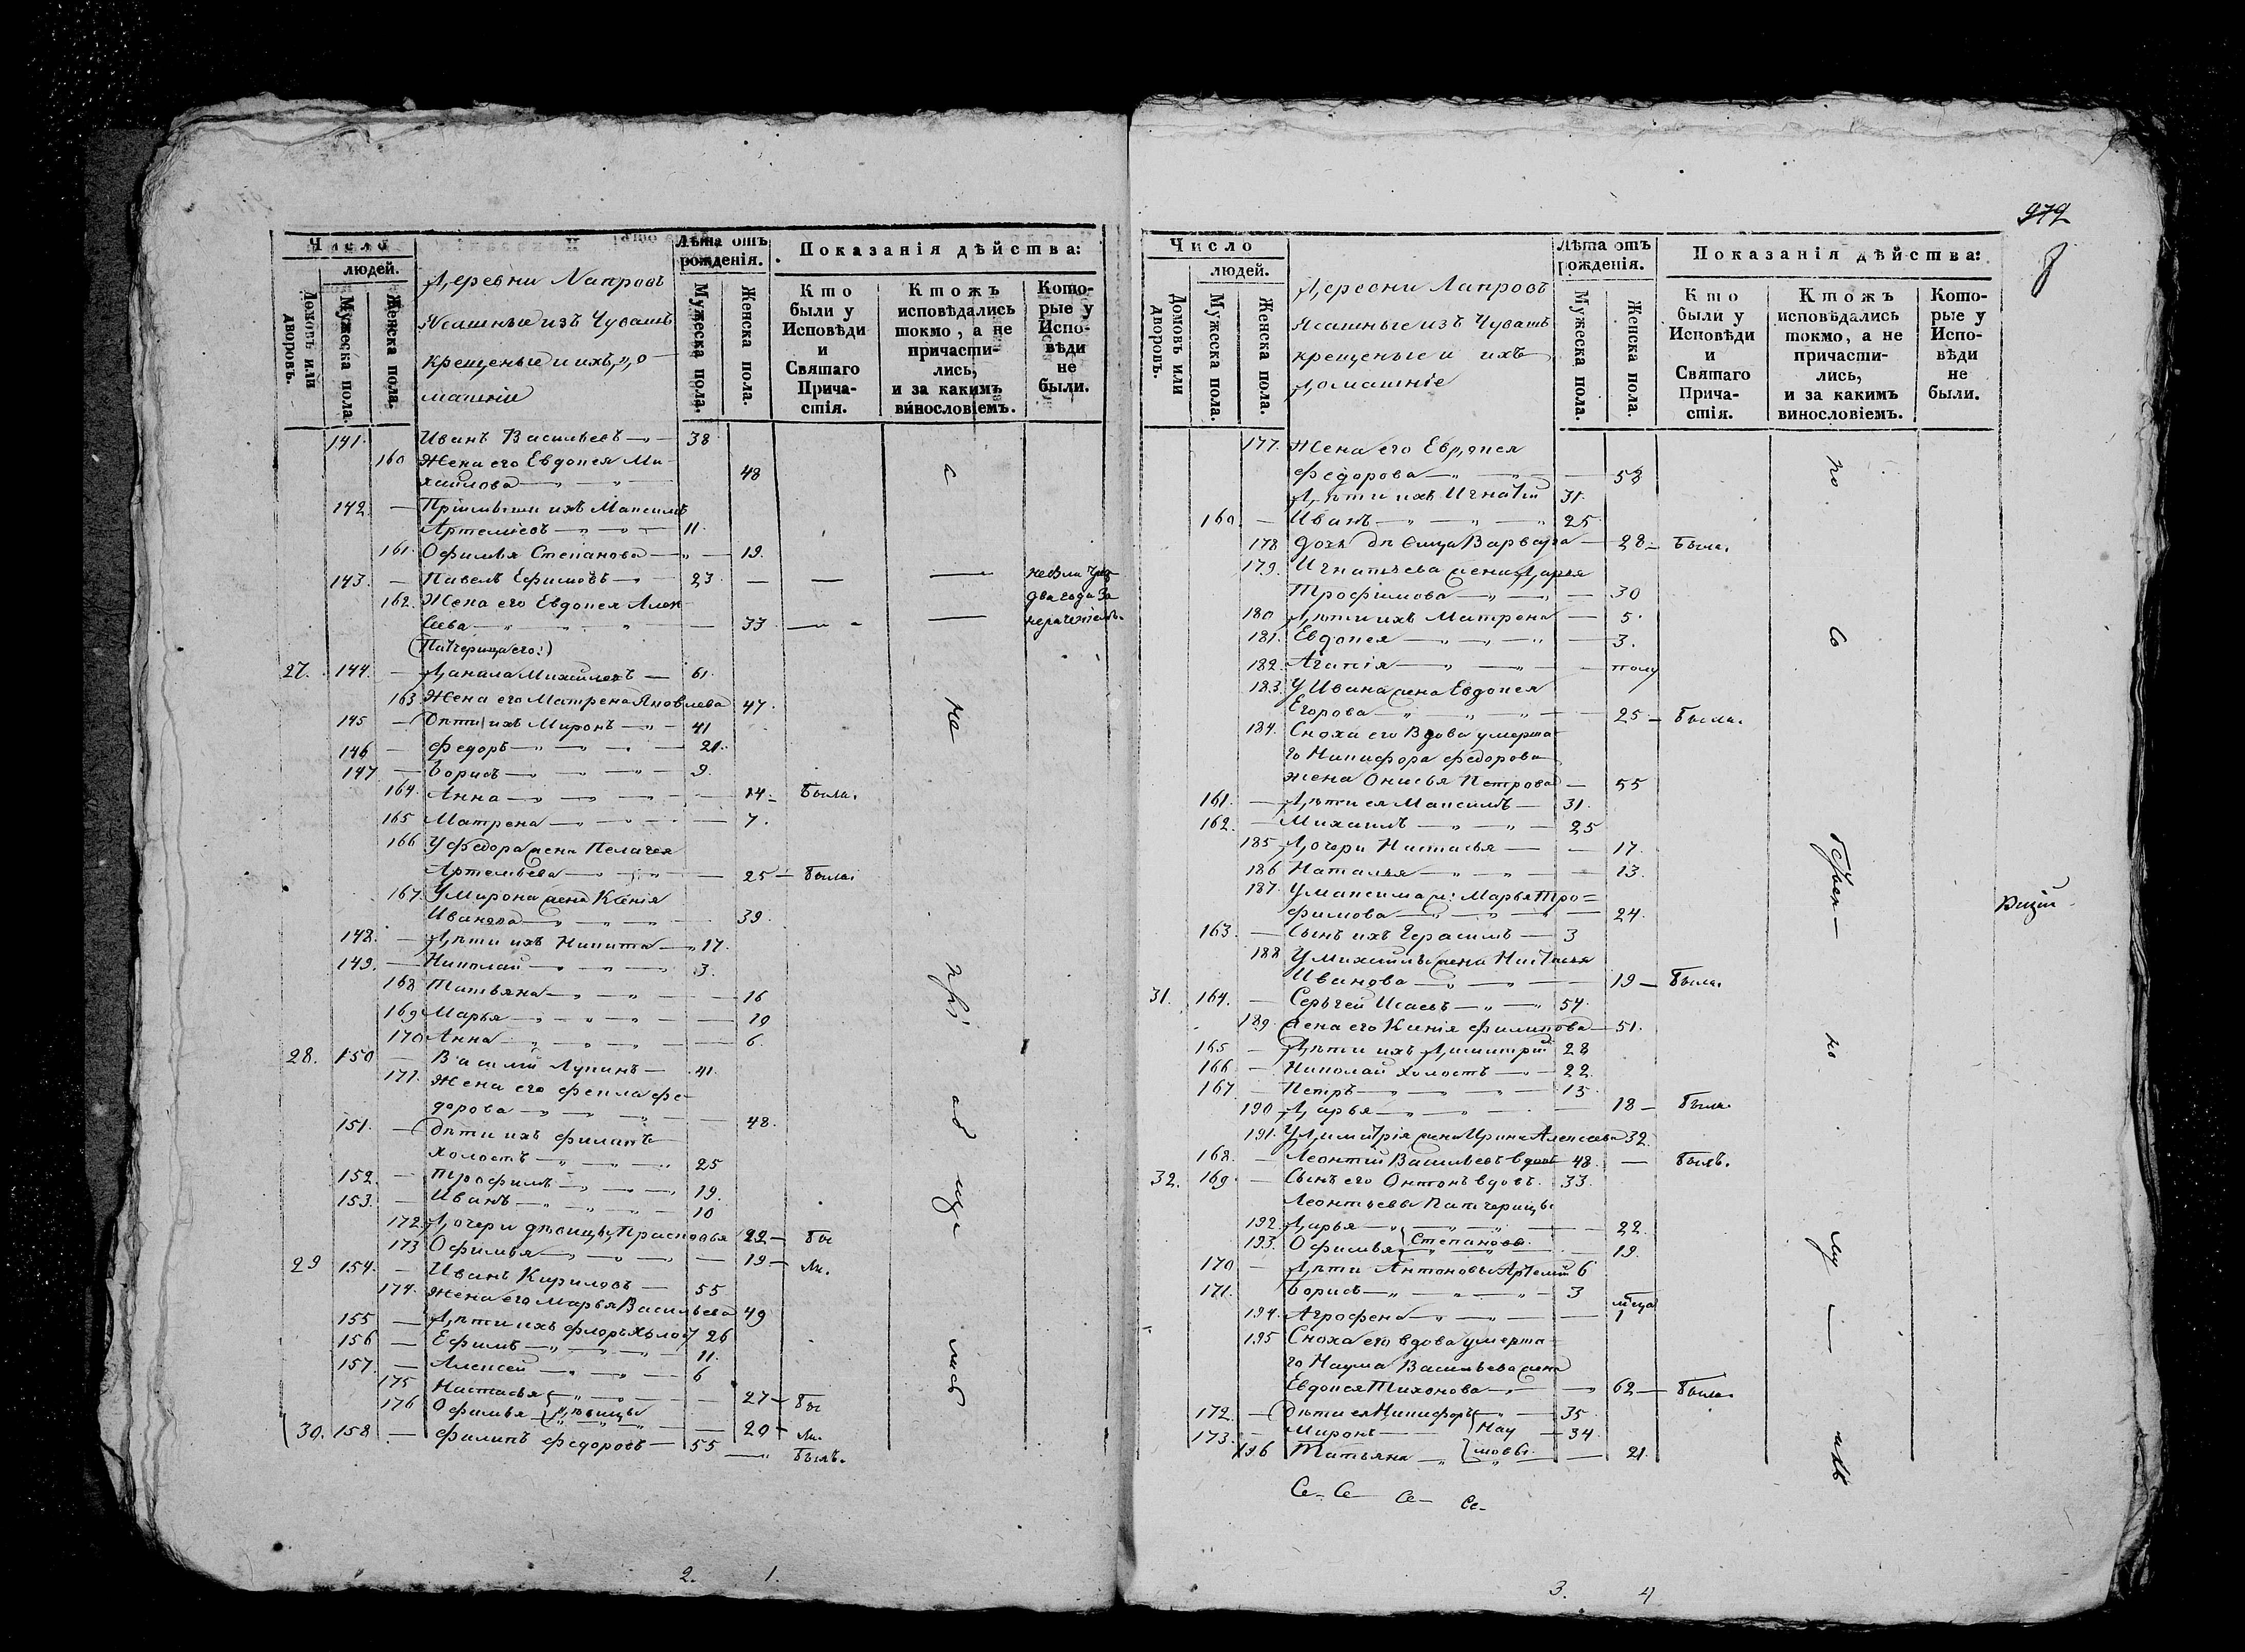 Число
людей.
Домовъ или дворовъ.
Мужеска пола.
Женска пола.
Деревни Лапровъ
Ясашные изъ Чувашъ
крещеные и ихъ до
машніе
Лѣта отъ рожденія.
Мужеска пола.
Женска пола.
Показанія дѣйства:
Кто были у Исповѣди и Святаго Причастія.
Ктожъ исповѣдались токмо, а не причастились, и за какимъ винословіемъ.
Которые у Исповѣди не были.
141. Иванъ Васильевъ 38
160 Жена его Евдокея Ми
хаилова 48
142. Пріимышъ ихъ Максимъ
Артеміевъ 11.
161. Офимья Степанова 19.
143. Павелъ Ефимовъ 23.
162. Жена его Евдокея Алек
сиева 33
два года за
(Патчерица его:)
27. 144. Данила Михайловъ 61.
163 Жена его Матрена Яковлева 47.
145 Дѣти ихъ Миронъ 41
146 Федоръ 21.
147 Борисъ 9.
164. Анна 14 была.
165 Матрена 7.
166 У Федора жена Пелагея
Артемьева 25 была.
167. У Мирона жена Ксенія
Иванова 39.
148. Дѣти ихъ Никита 17.
149. Николай 3.
168 Татьяна 16
169 Марья 10
170 Анна 6.
28. 150 Василій Лукинъ 41.
171. Жена его Фекла Фе
дорова 48.
151. Дѣти ихъ Филипъ
Холостъ 25
152. Трофимъ 19.
153. Иванъ 10
172. Дочери дѣвицы Прасковья 22 бы
173 Офимья 19 ли.
29 154. Иванъ Кириловъ 55
174. Жена его Марья Васильева 49
155 Дѣти ихъ Флоръ Холост 26
156 Ефимъ 11.
157. Алексей 6
175 Настасья 27 бы
176 Офимья дѣвицы 20 ли.
30. 158 Филипъ Федоровъ 55 былъ.
с
на
при
об
ща
лись
2. 1.
979
Число
людей.
Домовъ или дворовъ.
Мужеска пола.
Женска пола.
Деревни Лапровъ
Ясашные изъ Чувашъ
крещеные и ихъ
домашніе
Лѣта отъ рожденія.
Мужеска пола.
Женска пола.
Показанія дѣйства:
Кто были у Исповѣди и Святаго Причастія.
Ктожъ исповѣдались токмо, а не причастились, и за какимъ винословіемъ.
Которые у Исповѣди не были.
177. Жена его Евдокея
Федорова 58
Дѣти ихъ Игнатій 31.
160. Иванъ 25
178 Дочь дѣвица Варвара 28. была.
179. Игнатьева жена Дарья
Трофимова 30
180 Дѣти ихъ Матрена 5.
181. Евдокея 3.
182. Агапія полу
183. У Ивана жена Евдокея
Егорова 25 была.
184. Сноха его Вдова умерша
го Никифора Федорова
жена Онисья Петрова 55
161. Дѣти ея Максимъ 31.
162. Михаилъ 25
185 Дочери Настасья 17.
186 Наталья 13.
187. У Максима ж: Марья Тро=
фимова 24.
163. Сынъ ихъ Герасимъ 3
188 У Михаилы жена Настасья
Иванова 19 была.
31. 164. Сергей Исаевъ 54.
189. жена его Ксенія Филипова 51.
165 Дѣти ихъ Димитрій 28
166 Николай холостъ 22.
167. Петръ 15.
190 Дарья 18 была.
191. У Димитрія жена Ирина Алексеева 32.
168. Леонтій Васильевъ вдовъ 48. былъ.
32. 169. Сынъ его Антонъ вдовъ. 33.
Леонтьевы Патчерицы
192. Дарья 22.
193. Офимья Степановы. 19.
170 Дѣти Антоновы Артемій 6
171. Борисъ 3
194. Агрофена мца 1
195 Сноха его вдова умерша
го Наума Васильева жена
Евдокея Тихонова 62 была.
172. Дѣти ея Никифоръ 35.
173. Миронъ Нау 34.
196 Татьяна мовы. 21.
по
со
по
му
ихъ
Се Се Се Се
3. 4